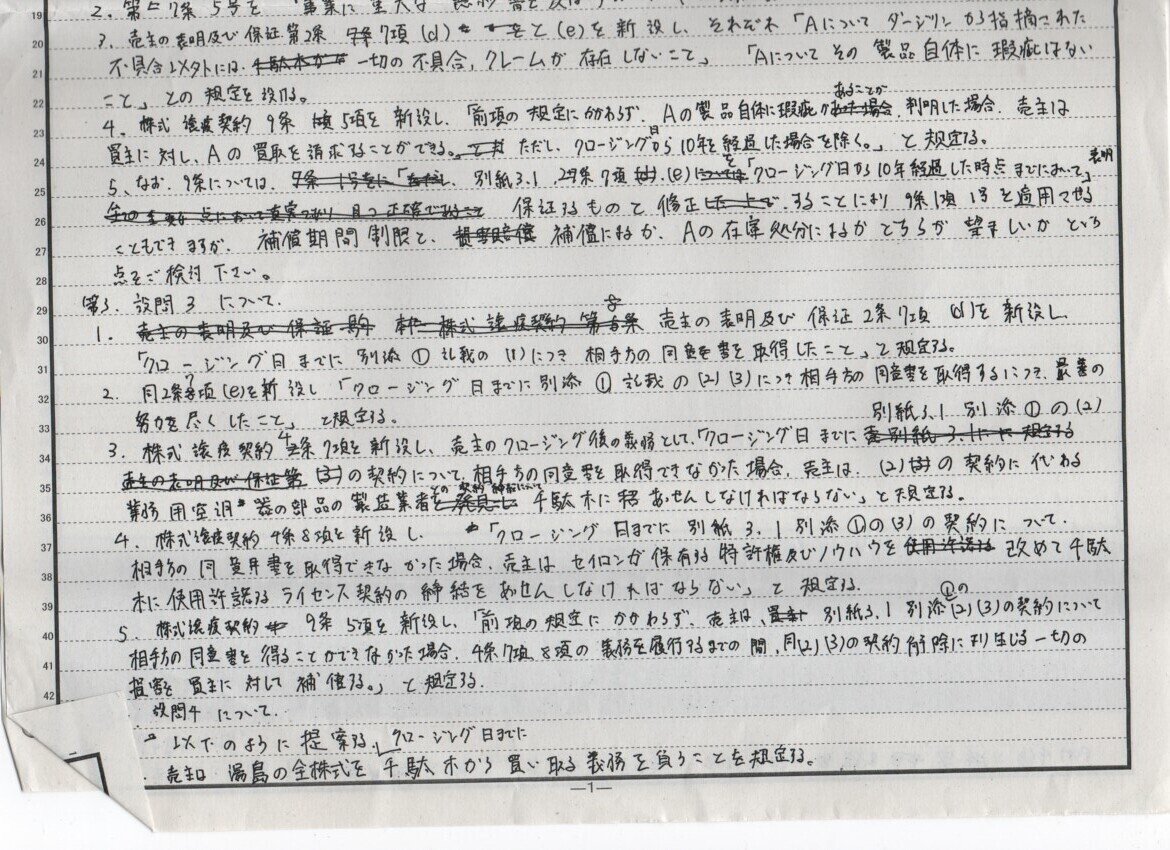 2. 第7条5号を「事業に重大な
20 3. 売主の表明及び保証第2条7項(d)と(e)を新設し、それぞれ「Aについてダージリンから指摘された
21 不具合以外には、一切の不具合、クレームが存在しないこと」「Aについてその製品自体に瑕疵はない
22 こと」との規定を設ける。
23 4. 株式譲渡契約9条5項を新設し、「前項の規定にかかわらず、Aの製品自体に瑕疵があることが判明した場合、売主は
24 買主に対し、Aの買取を請求することができる。ただし、クロージング日から10年を経過した場合を除く。」と規定する。
25 5. なお、9条については、別紙3.1、2条7項(e)を「クロージング日から10年経過した時点までにおいて」表明
26 保証するものと修正することにより9条1項1号を適用させる
27 こともできますが、補償期間制限と、補償によるか、Aの在庫処分によるかどちらが望ましいかという
28 点をご検討下さい。
29 第3. 設問3について.
30 1. 売主の表明及び保証2条7項(d)を新設し
31 「クロージング日までに別添①記載の(1)につき相手方の同意書を取得したこと」と規定する。
32 2. 同2条7項(e)を新設し「クロージング日までに別添①記載の(2)(3)につき相手方の同意書を取得するにつき、最善の
33 努力を尽くしたこと」と規定する。
34 3. 株式譲渡契約4条7項を新設し、売主のクロージング後の義務として、「クロージング日までに別紙3.1別添①の(2)
35 の契約について、相手方の同意書を取得できなかった場合、売主は、(2)の契約に代わる
36 業務用空調器の部品の製造業者との契約締結について千駄木にあっせんしなければならない」と規定する。
37 4. 株式譲渡契約4条8項を新設し、「クロージング日までに別紙3.1別添①の(3)の契約について、
38 相手方の同意書を取得できなかった場合、売主はセイロンが保有する特許権及びノウハウを改めて千駄
39 木に使用許諾するライセンス契約の締結をあっせんしなければならない」と規定する.
40 5. 株式譲渡契約9条5項を新設し、「前項の規定にかかわらず、売主は、別紙3.1別添①の(2)(3)の契約について
41 相手方の同意書を得ることができなかった場合、4条7項、8項の義務を履行するまでの間、同(2)(3)の契約解除により生じる一切の
42 損害を買主に対して補償する。」と規定する.
設問4について.
以下のように提案する。クロージング日までに
売主は湯島の全株式を千駄木から買い取る義務を負うことを規定する。
—1—